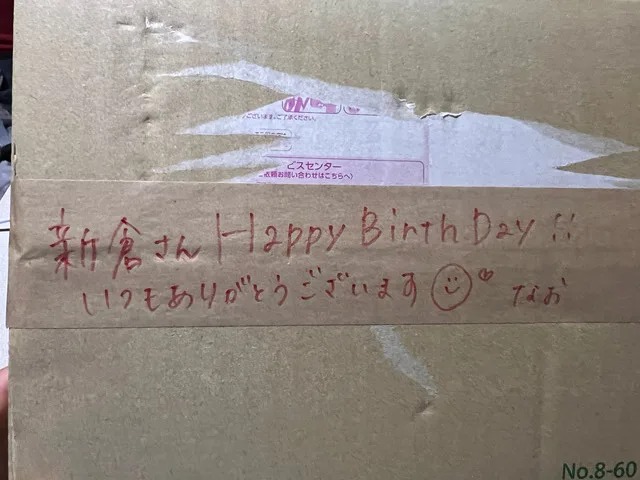 ございます。ご了承ください。
ビスセンター
依頼お問い合わせはこちらへ)
新倉さん Happy BirthDay!!
いつもありがとうございます なお
No.8-60